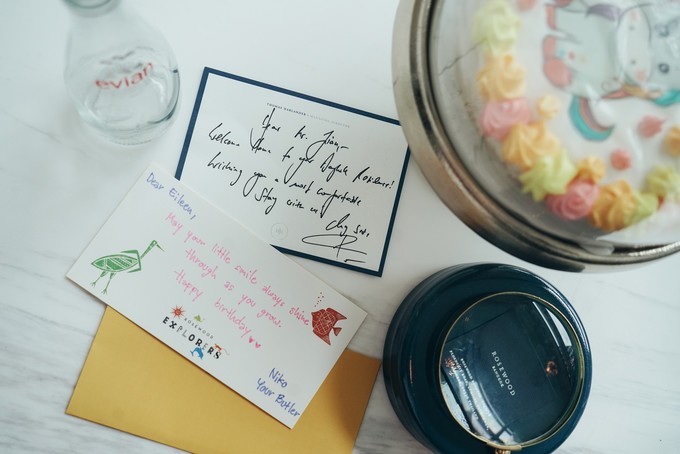 evian
THOMAS HARLANDER
Dear Mr. Jiang -
Welcome Home to your Bangkok Residence!
Wishing you a most comfortable
Stay with us
Dear Eileen,
May your little smile always shine
through as you grow.
Happy birthday ♥♥
ROSEWOOD
EXPLORERS
Niko
Your Butler
ROSEWOOD
BANGKOK